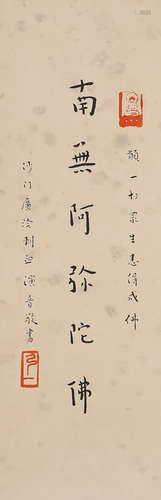 願一切眾生悉得成佛
南無阿彌陀佛
沙門廣洽刺血演音敬書